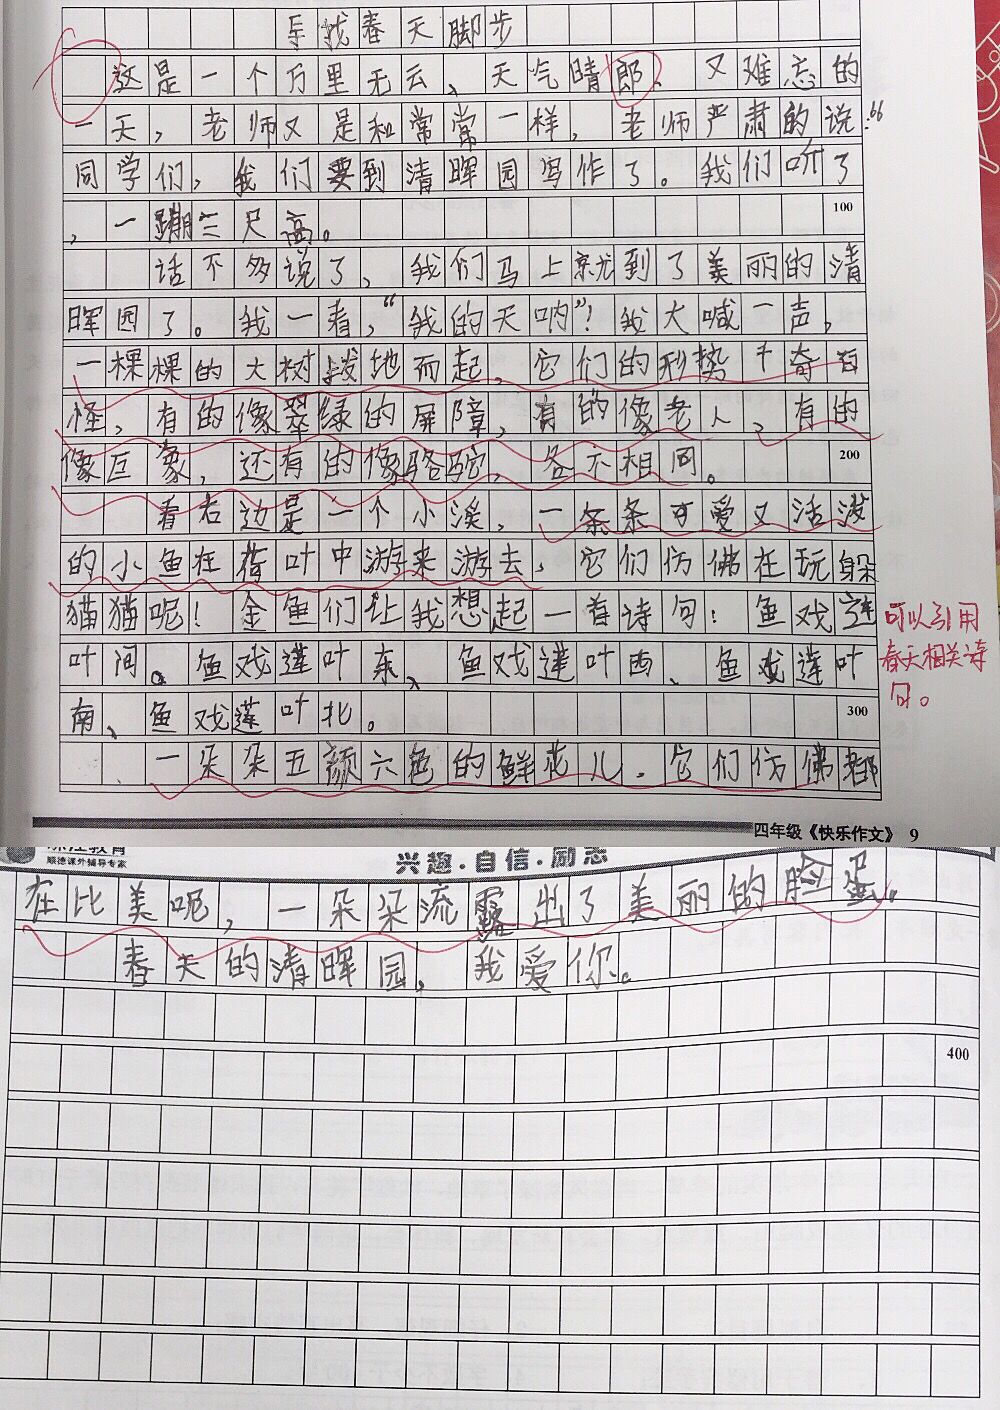 寻找春天脚步
这是一个万里无云、天气晴郎、又难忘的
一天，老师又是和常常一样，老师严肃的说：“
同学们，我们要到清晖园写作了。我们听了
，一蹦三尺高。
100
话不多说了，我们马上就到了美丽的清
晖园了。我一看，“我的天呐”！我大喊一声，
一棵棵的大树拔地而起，它们的形势千奇百
怪，有的像翠绿的屏障，有的像老人、有的
像巨象，还有的像骆驼，各不相同。
200
看右边是一个小溪，一条条可爱又活泼
的小鱼在荷叶中游来游去，它们仿佛在玩躲
猫猫呢！金鱼们让我想起一首诗句：鱼戏莲
叶间。鱼戏莲叶东、鱼戏莲叶西、鱼戏莲叶
南、鱼戏莲叶北。
300
可以引用
春天相关诗
句。
一朵朵五颜六色的鲜花儿．它们仿佛都
四年级《快乐作文》 9
教育
顺德课外辅导专家
兴趣·自信·励志
在比美呢，一朵朵流露出了美丽的脸蛋。
春天的清晖园，我爱你。
400